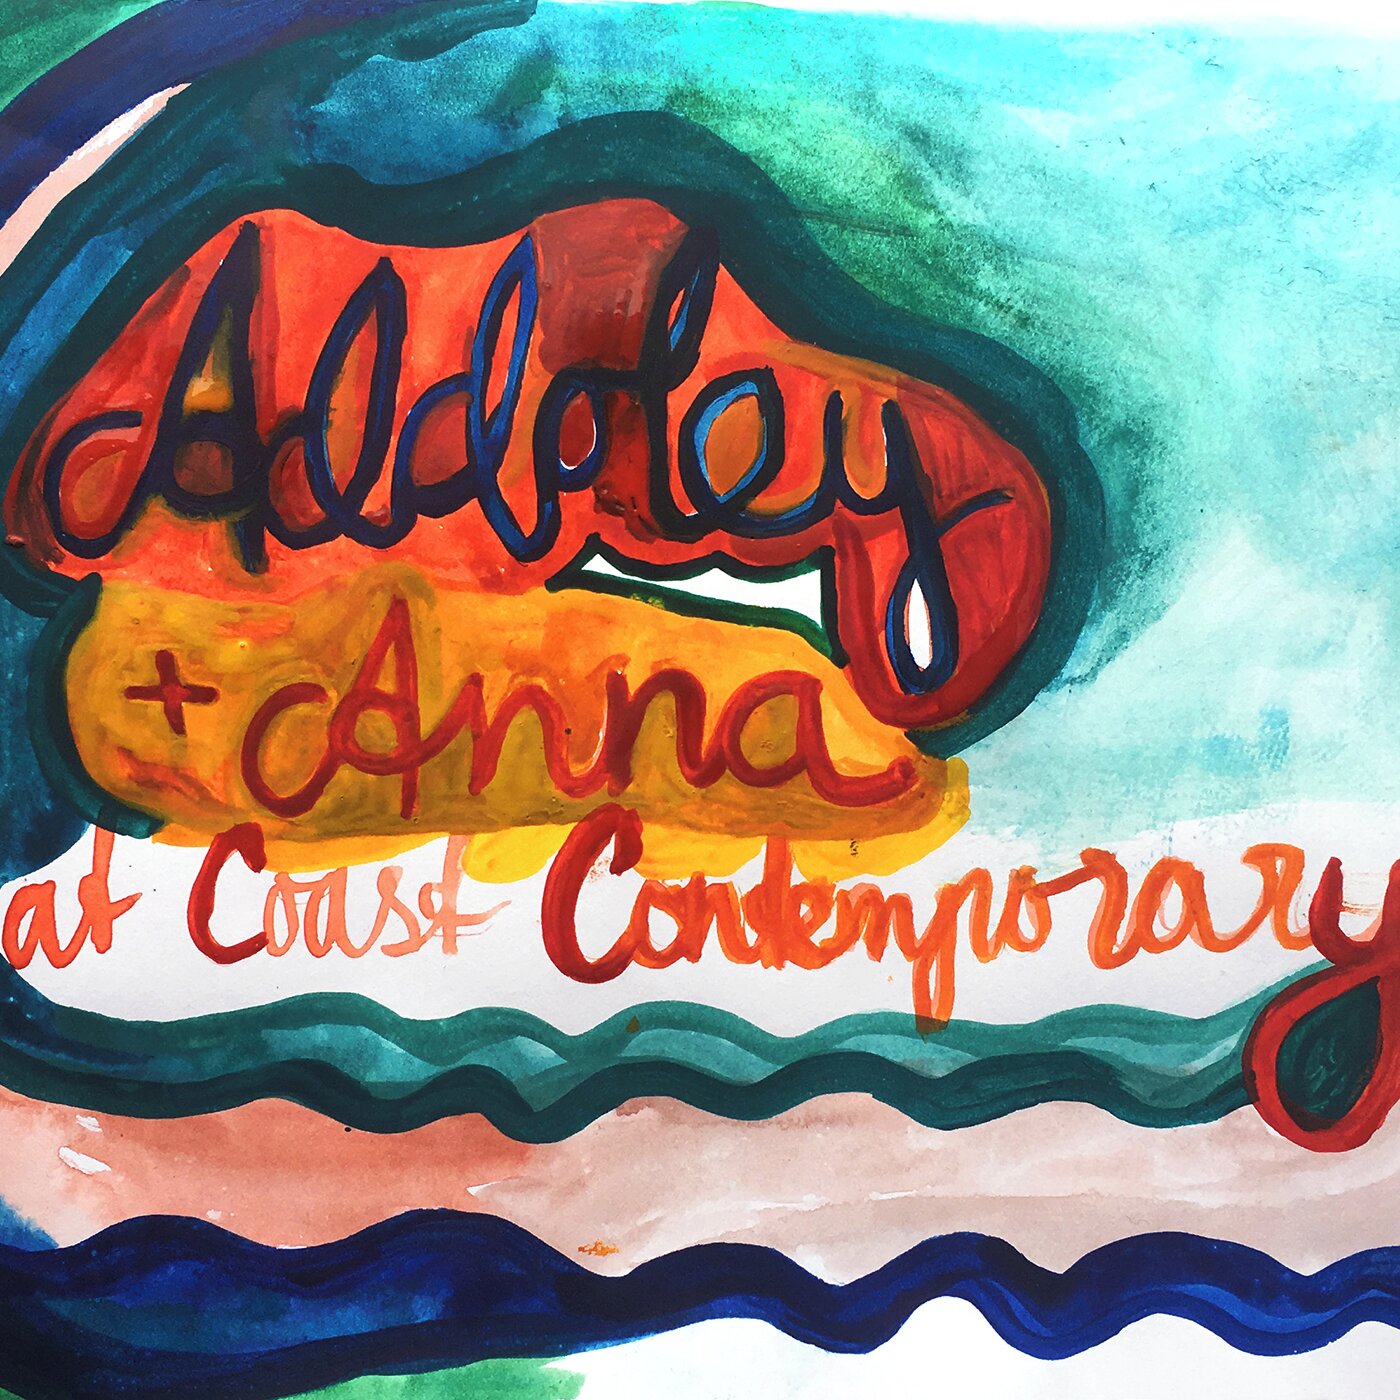 Aldoley
+ Anna
at Coast Contemporary